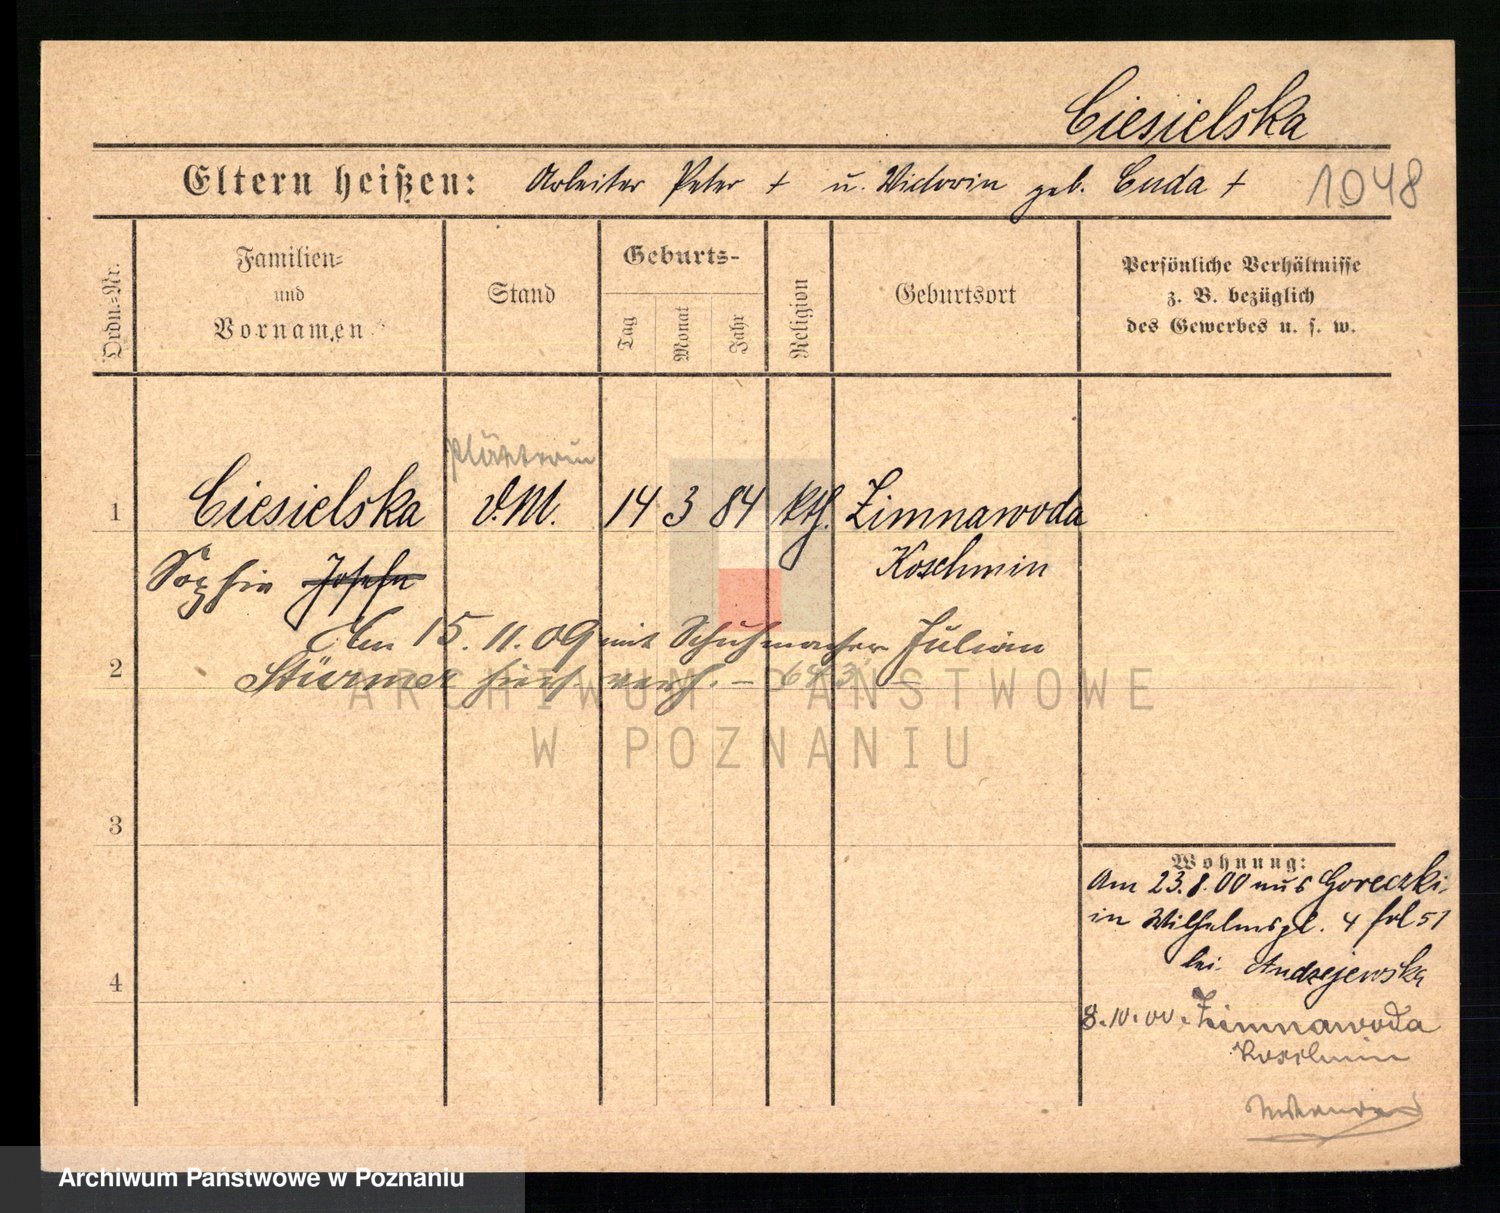 Ciesielska
Eltern heißen: Arbeiter Peter + u. Victorin geb. Cuda + 1048
Ordn.=Nr.
Familien=
und
Vornamen
Stand
Geburts-
Tag
Monat
Jahr
Religion
Geburtsort
Persönliche Verhältnisse
z. B. bezüglich
des Gewerbes u. s. w.
Plätterin
1 Ciesielska d.M. 14 3 84 kth. Zimnawoda
Sophie Josefa Koschmin
Am 15.11.09 mit Schuhmacher Julian
2
Stürmer hier verh. –
3
Wohnung:
Am 23.8.00 aus Goreczki
in Wilhelmspl. 4 fol 51
bei Andrzejewska
4
8.10.00. Zimnawoda
Koschmin
ARCHIWUM PAŃSTWOWE
W POZNANIU
Archiwum Państwowe w Poznaniu